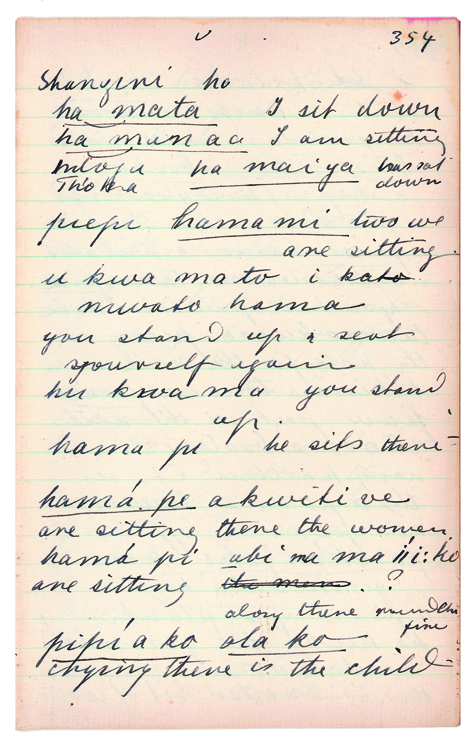 354
Shangini ho
ha mata I sit down
ha munaa I am sitting
ha maiya has sat
Thota down
piepi hamami two we
are sitting.
u kwa mato i kato
muvato hama
you stand up & seat
yourself again
hu kwa ma you stand
up.
hama pi he sits there
hamá pe akwiti ve
are sitting there the women
hamá pi ubi ma
are sitting the men. ?
along there
fire
pipía ko ola ko
crying there is the child